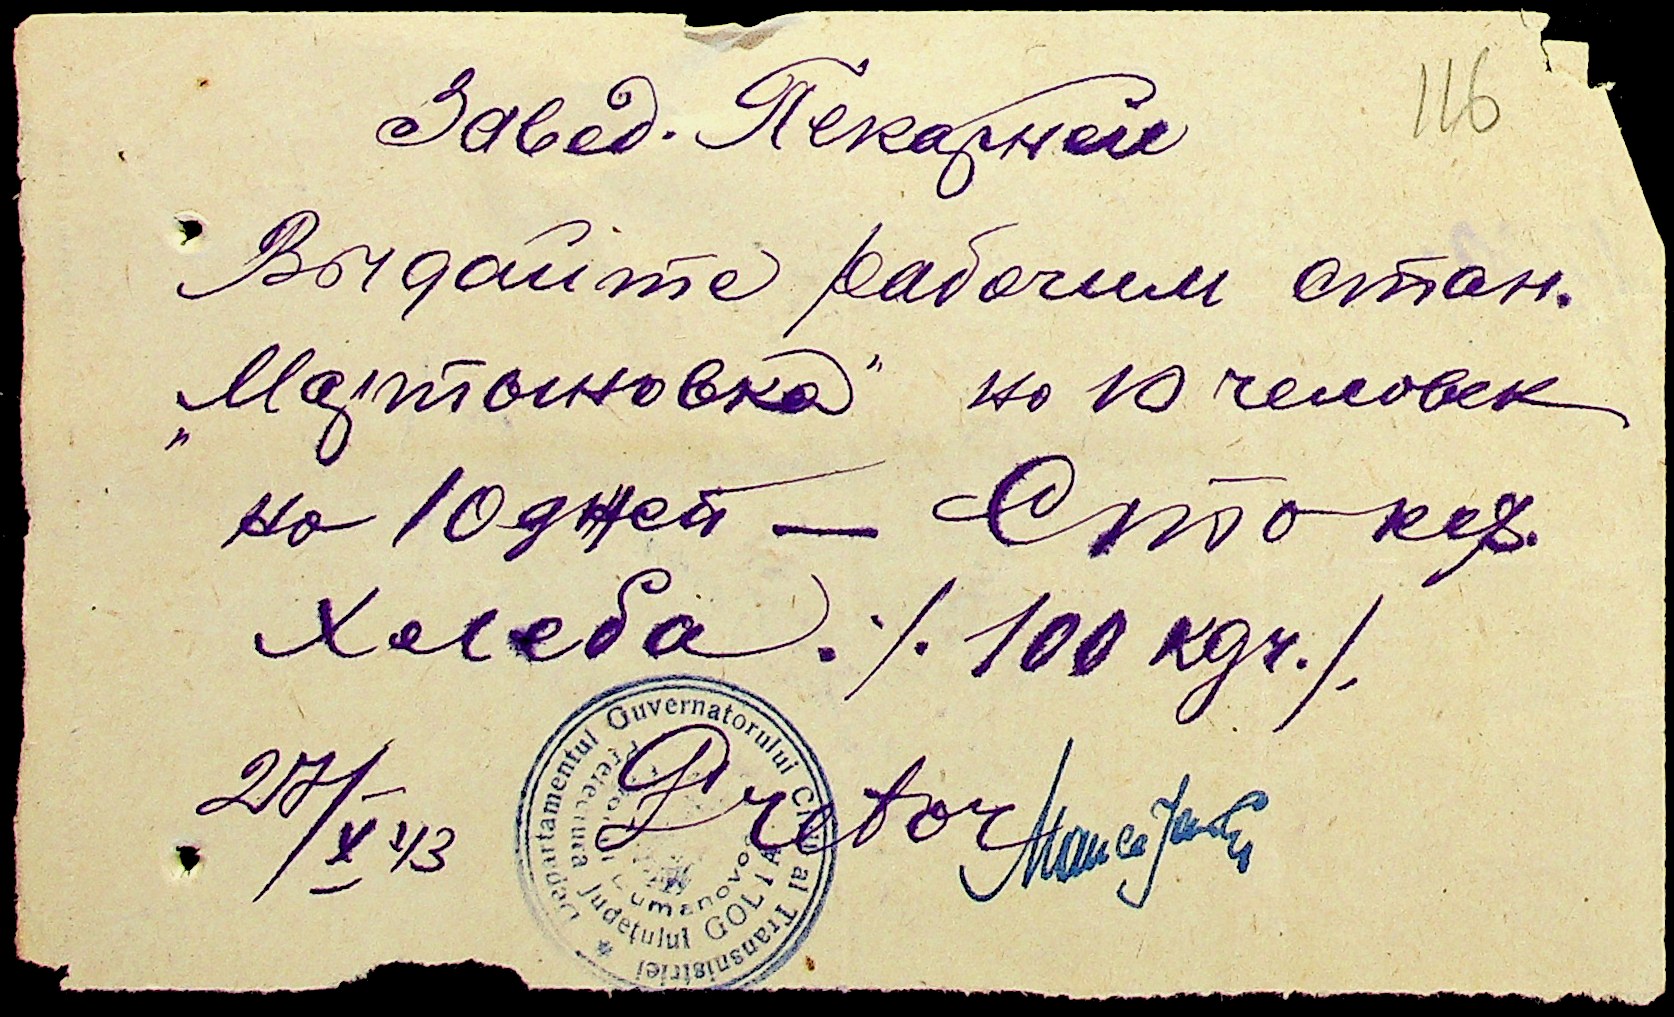 116
Завед. Пекарней
Выдайте рабочим стан.
„Мартыновка" на 10 человек
на 10 дней — Сто кгр.
Хлеба. ./. 100 кгр. /.
27/X 43 Pretor
Departamentul Guvernatorului Civil al Transnistriei
Prefectura Judeţului GOLTA